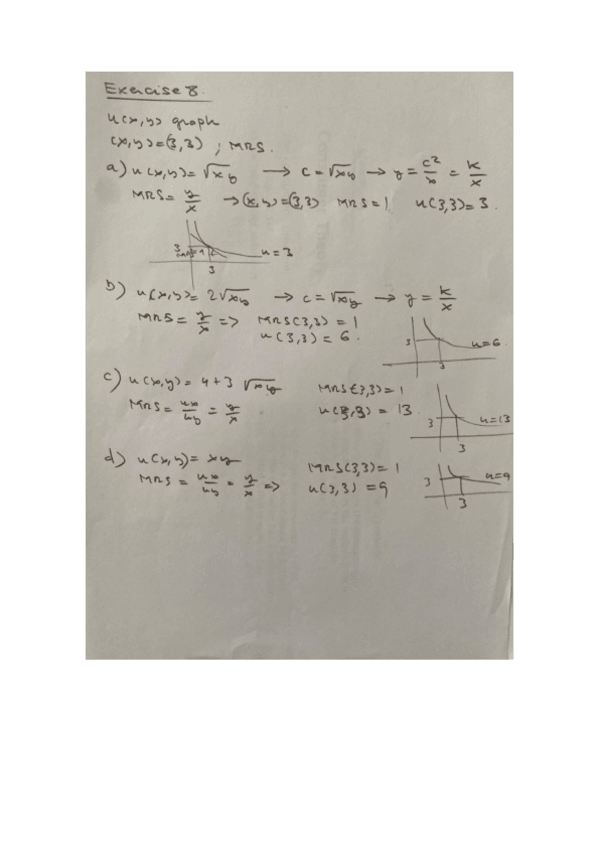 Exercise 8.
u(x,y) graph
(x,y)=(3,3) ; MRS.
a) u(x,y)=√xy → c=√xy → y=c²/x=k/x
MRS=y/x → (x,y)=(3,3) MRS=1 u(3,3)=3
3
u=3
3
b) u(x,y)=2√xy → c=√xy → y=k/x
MRS=y/x => MRS(3,3)=1
u(3,3)=6.
3
u=6
3
c) u(x,y)=4+3√xy MRS(3,3)=1
MRS=ux/uy=y/x u(3,3)=13.
3
u=13
3
d) u(x,y)=xy MRS(3,3)=1
MRS=ux/uy=y/x => u(3,3)=9
3
u=9
3